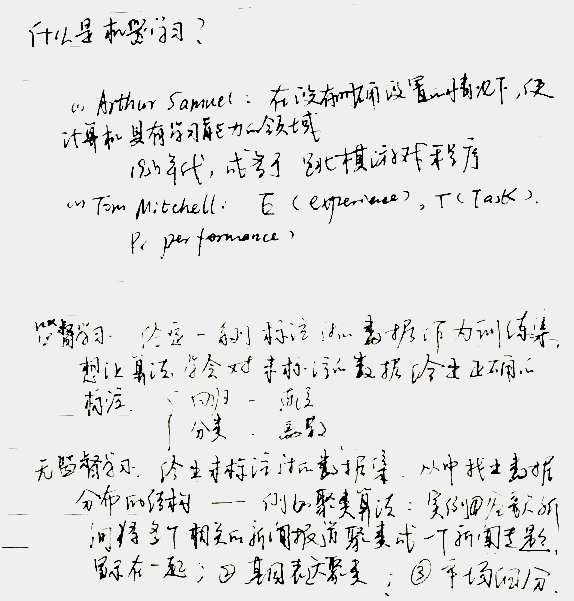 什么是机器学习?
(1) Arthur Samuel: 在没有明确设置的情况下,使
计算机具有学习能力的领域
1950年代, 跳棋游戏程序
(2) Tom Mitchell: E (experience), T (Task).
P( performance)
监督学习. 给定一系列标注过的数据作为训练集,
想让算法学会对未标注的数据给出正确的
标注. { 回归 - 连续
分类 - 离散
无监督学习. 给出未标注过的数据集. 从中找出数据
分布的结构 —— 例如聚类算法: 实例①
同将多个相关的新闻报道聚类成一个新闻专题,
显示在一起; ② 基因表达聚类; ③ 市场细分.